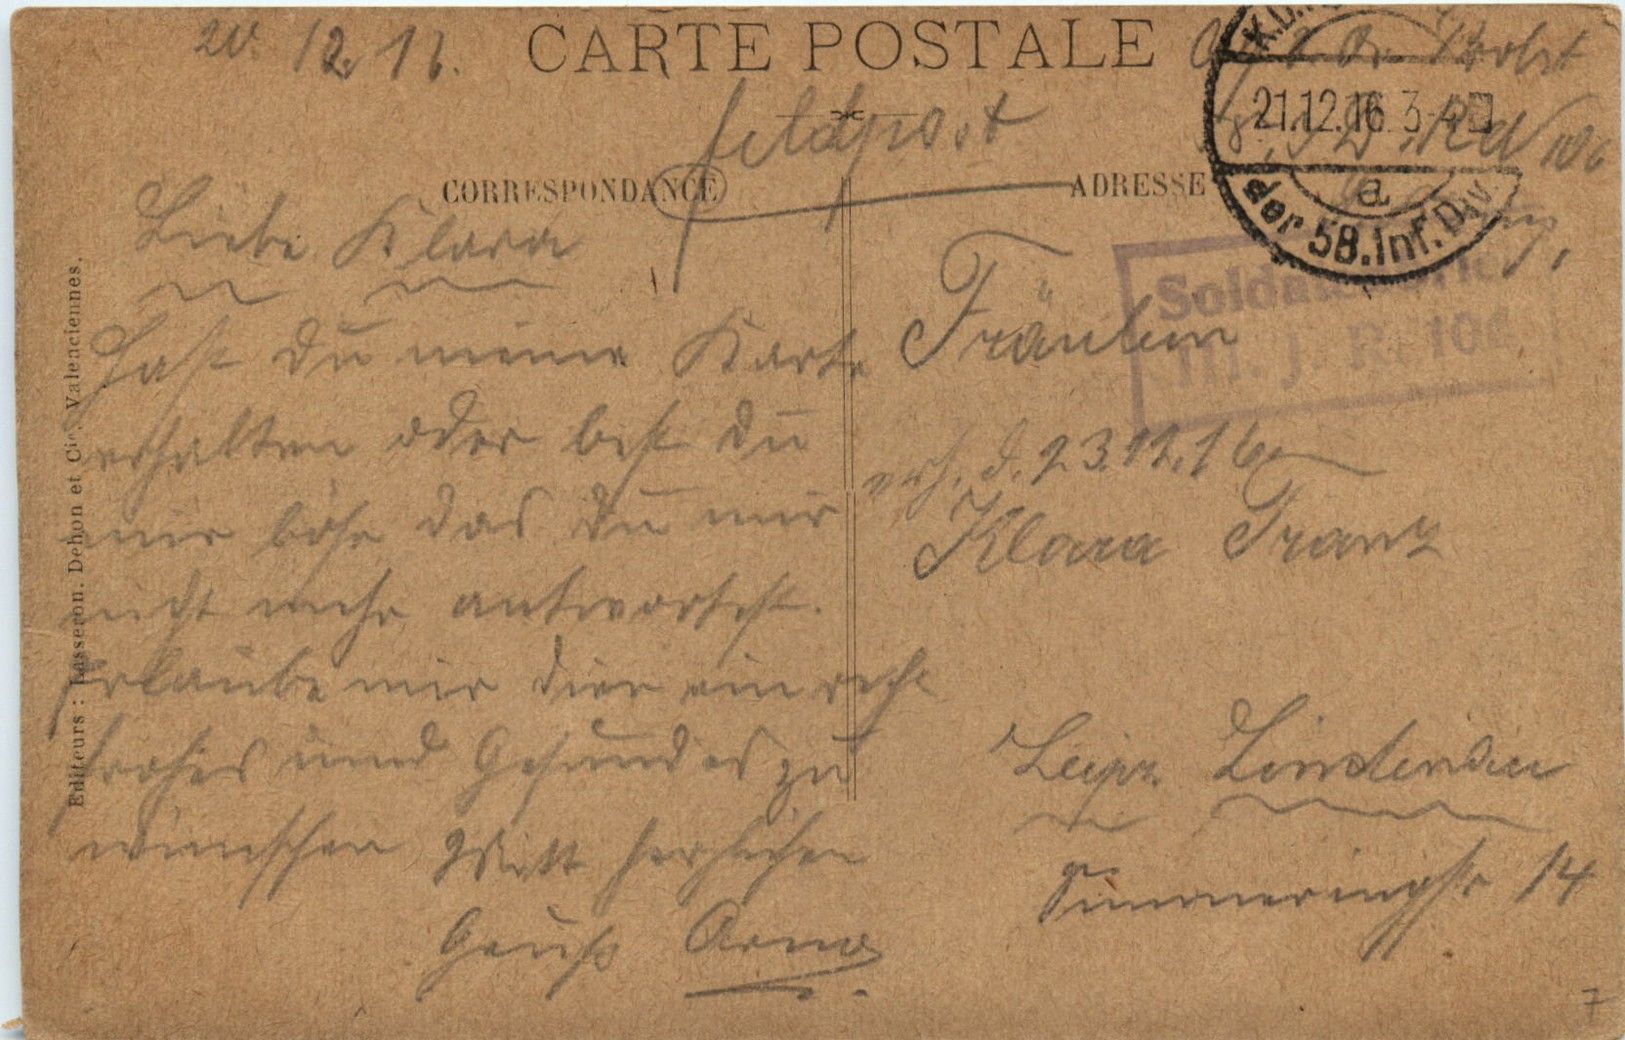 20. 12. 16.
CARTE POSTALE
Feldpost
CORRESPONDANCE
ADRESSE
21.12.16 3-4
a
der 58. Inf. Div.
Liebe Klara
Hast du meine Karte
erhalten oder bist du
mir böse das du mir
nicht mehr antwortest.
Erlaube mir dier ein recht
frohes und Gesundes zu
wünschen Mitt herzlichen
Gruß Arno
Fräulein
erh. d. 23.12.16
Klara Franz
Leipz. Lindenau
14
Soldatenbrief
III. J. R. 106
Editeurs : Lasseron, Dehon et Cie, Valenciennes.
7